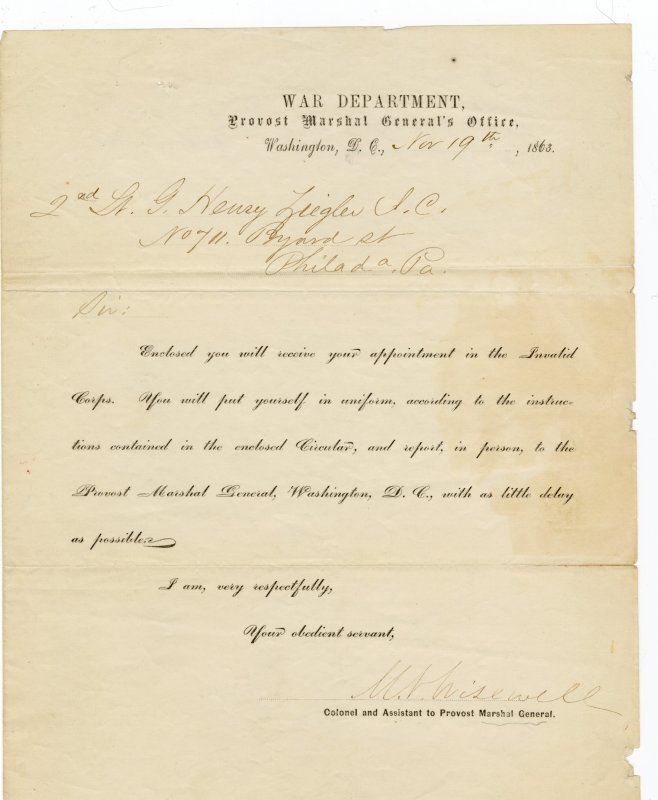 WAR DEPARTMENT,
Provost Marshal General's Office,
Washington, D. C., Nov 19th, 1863.
2nd Lt. G. Henry Ziegler I. C.
No 711. Byard St
Philada. Pa.
Sir:
Enclosed you will receive your appointment in the Invalid
Corps. You will put yourself in uniform, according to the instruc-
tions contained in the enclosed Circular, and report, in person, to the
Provost Marshal General, Washington, D. C., with as little delay
as possible.
I am, very respectfully,
Your obedient servant,
M. N. Wisewell
Colonel and Assistant to Provost Marshal General.